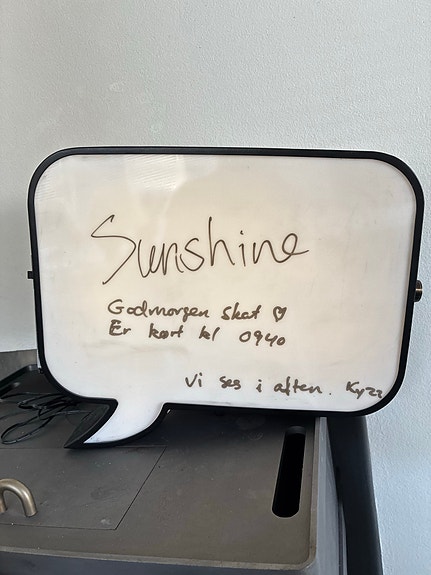 Sunshine
Godmorgen skat ♡
Er kørt kl 0940
Vi ses i aften. Kyzz